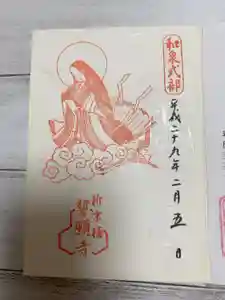 和泉式部
平成二十九年二月五日
新京極
誓願寺